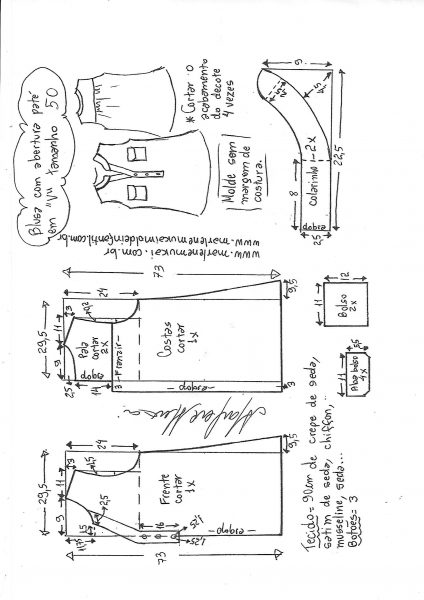 Blusa com abertura paté
em "V" tamanho
50
* Cortar o
acabamento
do decote
4 vezes
Molde sem
margem de
costura.
www.marlenemukai.com.br
www.marlenemukaimoldeinfantil.com.br
9
5
22,5
8
2,5
dobra
colarinho 1-2x
73
29,5
24
11
3
9
2,5
14
3
9,5
3
Pala
cortar
2x
dobra
-Franzir-
Costas
cortar
1x
-dobra-
11
12
Bolso
2x
11
5,5
Aba bolso
4x
Marlene Mukai
29,5
24
11
3
1,5
9
2,5
1,5
16
1,25
73
9,5
Frente
cortar
1x
-dobra-
Tecido= 90cm de crepe de seda,
satim de seda, chiffon,
musseline, seda...
Botões= 3